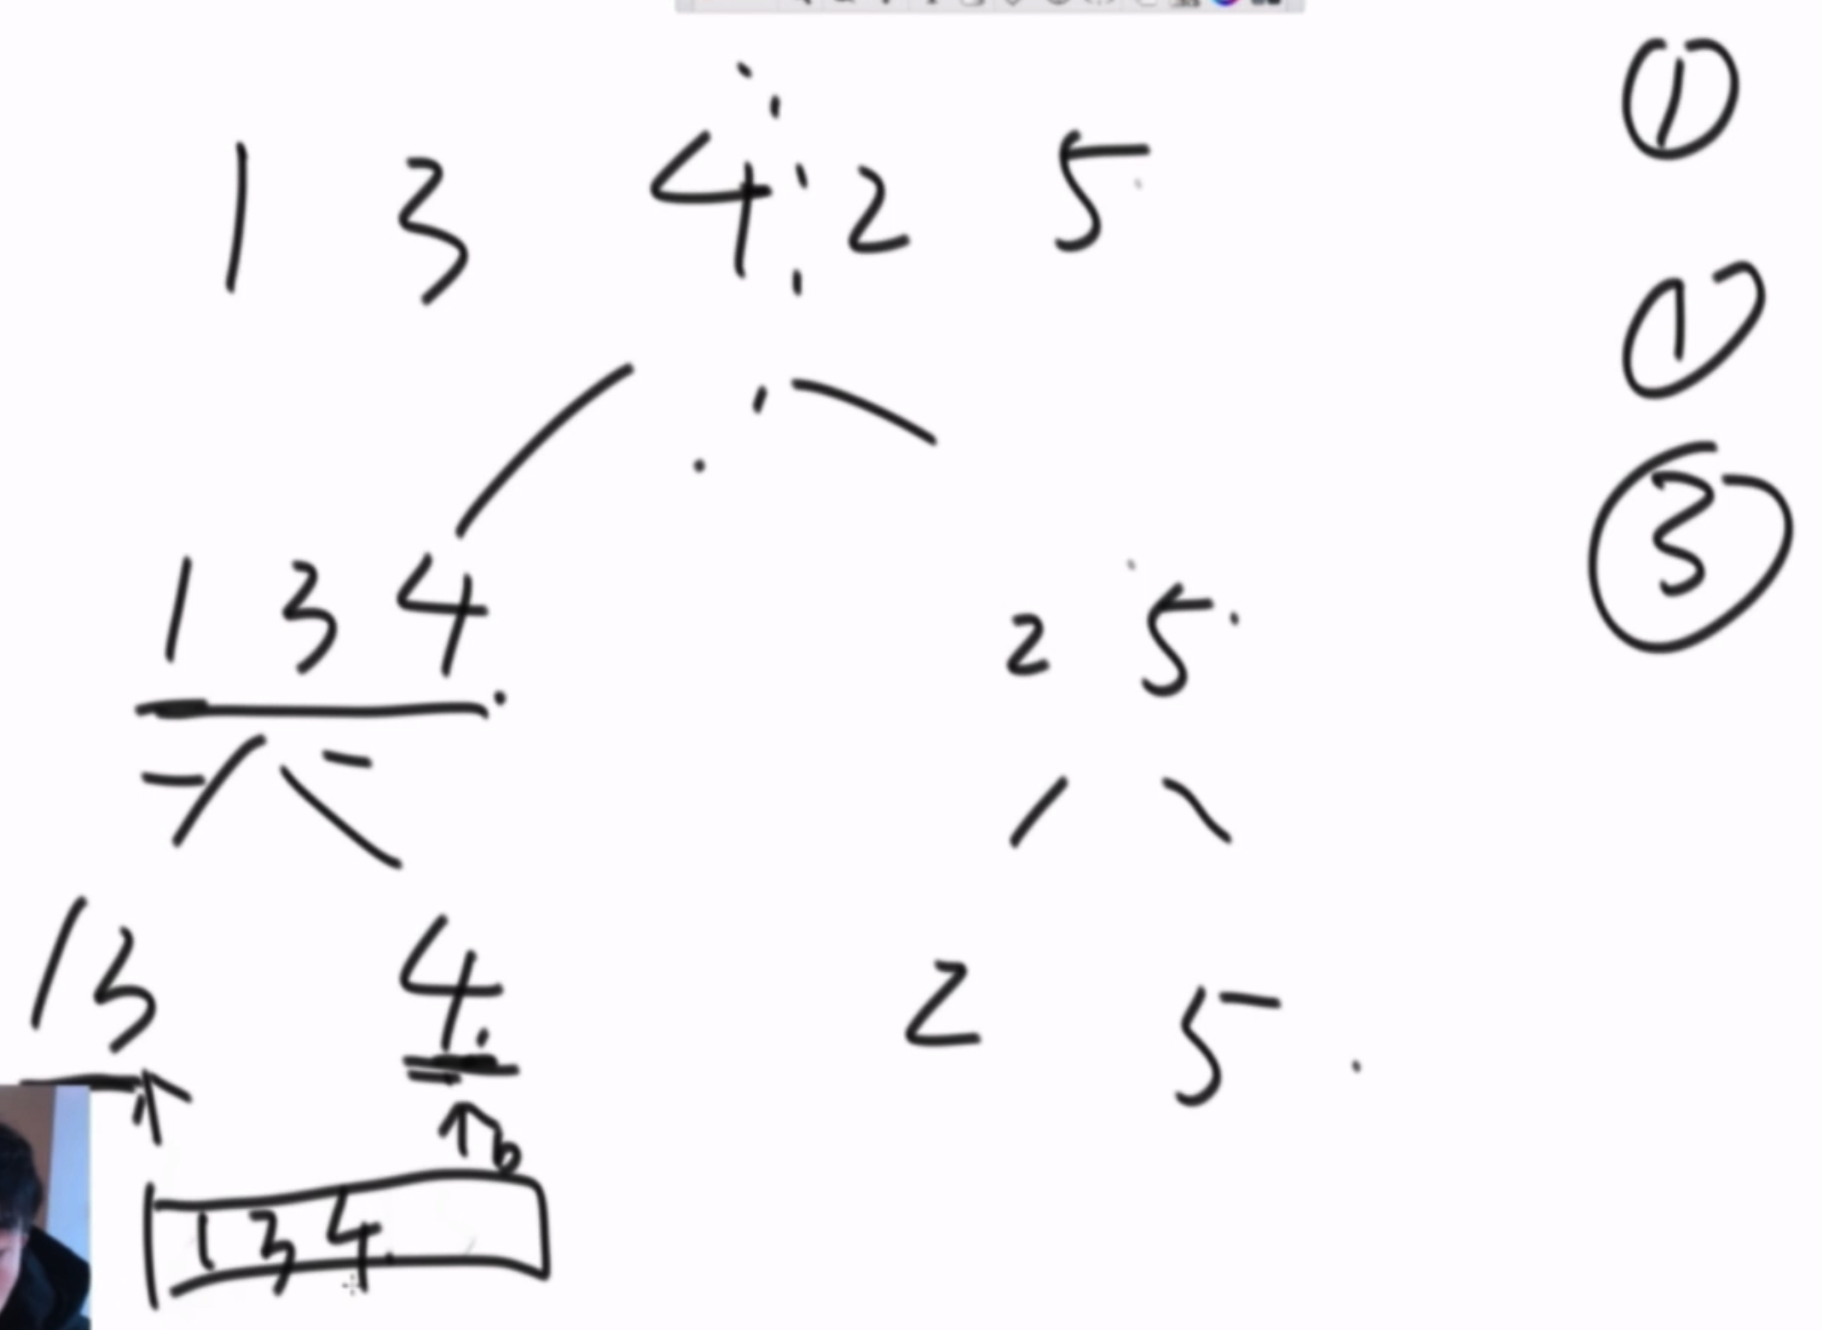 1 3 4 2 5
①
①
③
1 3 4 2 5
1 3 4 2 5
b
1 3 4